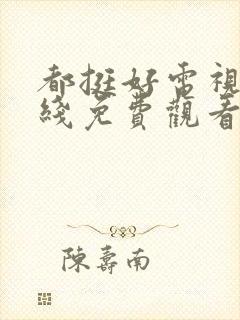 都挺好電視
綫免費觀看
陳壽南